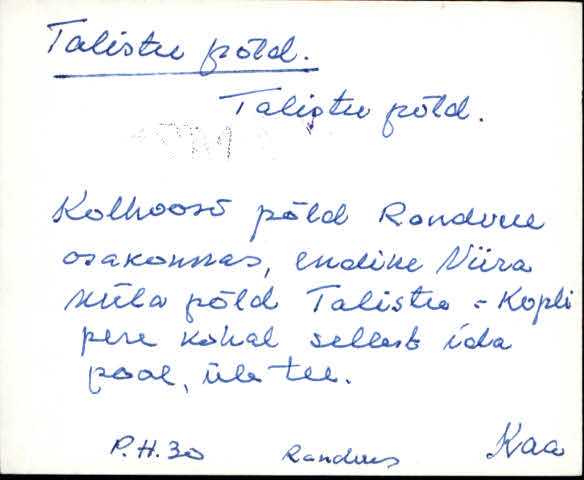 Talistu põld.
Talistu põld.
Kolhoosi põld Randvere
osakonnas, endine Viira
küla põld Talistu - Kopli
pere kohal sellest ida
pool, üle tee.
P.H. 30 Randvere Kaa